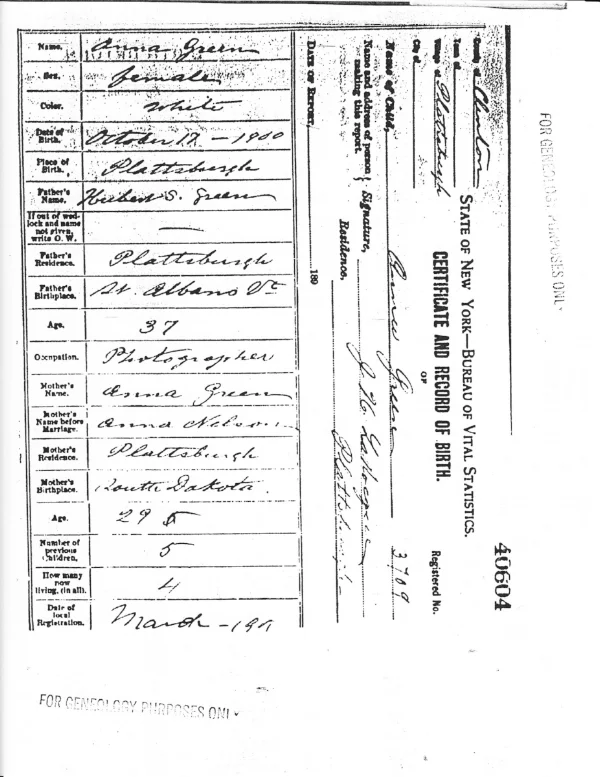 Name. Anna Green
Sex. female
Color. White
Date of Birth. October 12 – 1900
Place of Birth. Plattsburgh
Father's Name. Herbert S. Green
If out of wed-
lock and name
not given,
write O. W. —
Father's Residence. Plattsburgh
Father's Birthplace. St. Albans Vt
Age. 37
Occupation. Photographer
Mother's Name. Anna Green
Mother's Name before Marriage. Anna Nelson
Mother's Residence. Plattsburgh
Mother's Birthplace. South Dakota.
Age. 29
Number of previous Children. 5
How many now living, (in all). 4
Date of local Registration. March – 190
40604
STATE OF NEW YORK—BUREAU OF VITAL STATISTICS.
CERTIFICATE AND RECORD OF BIRTH.
OF
County of Clinton
Town of
Village of Plattsburgh
City of
Registered No. 3709
Name of Child, Green
Name and address of person making this report. } Signature,
Residence, Plattsburgh
DATE OF REPORT, 189
FOR GENEOLOGY PURPOSES ONLY
FOR GENEOLOGY PURPOSES ONLY